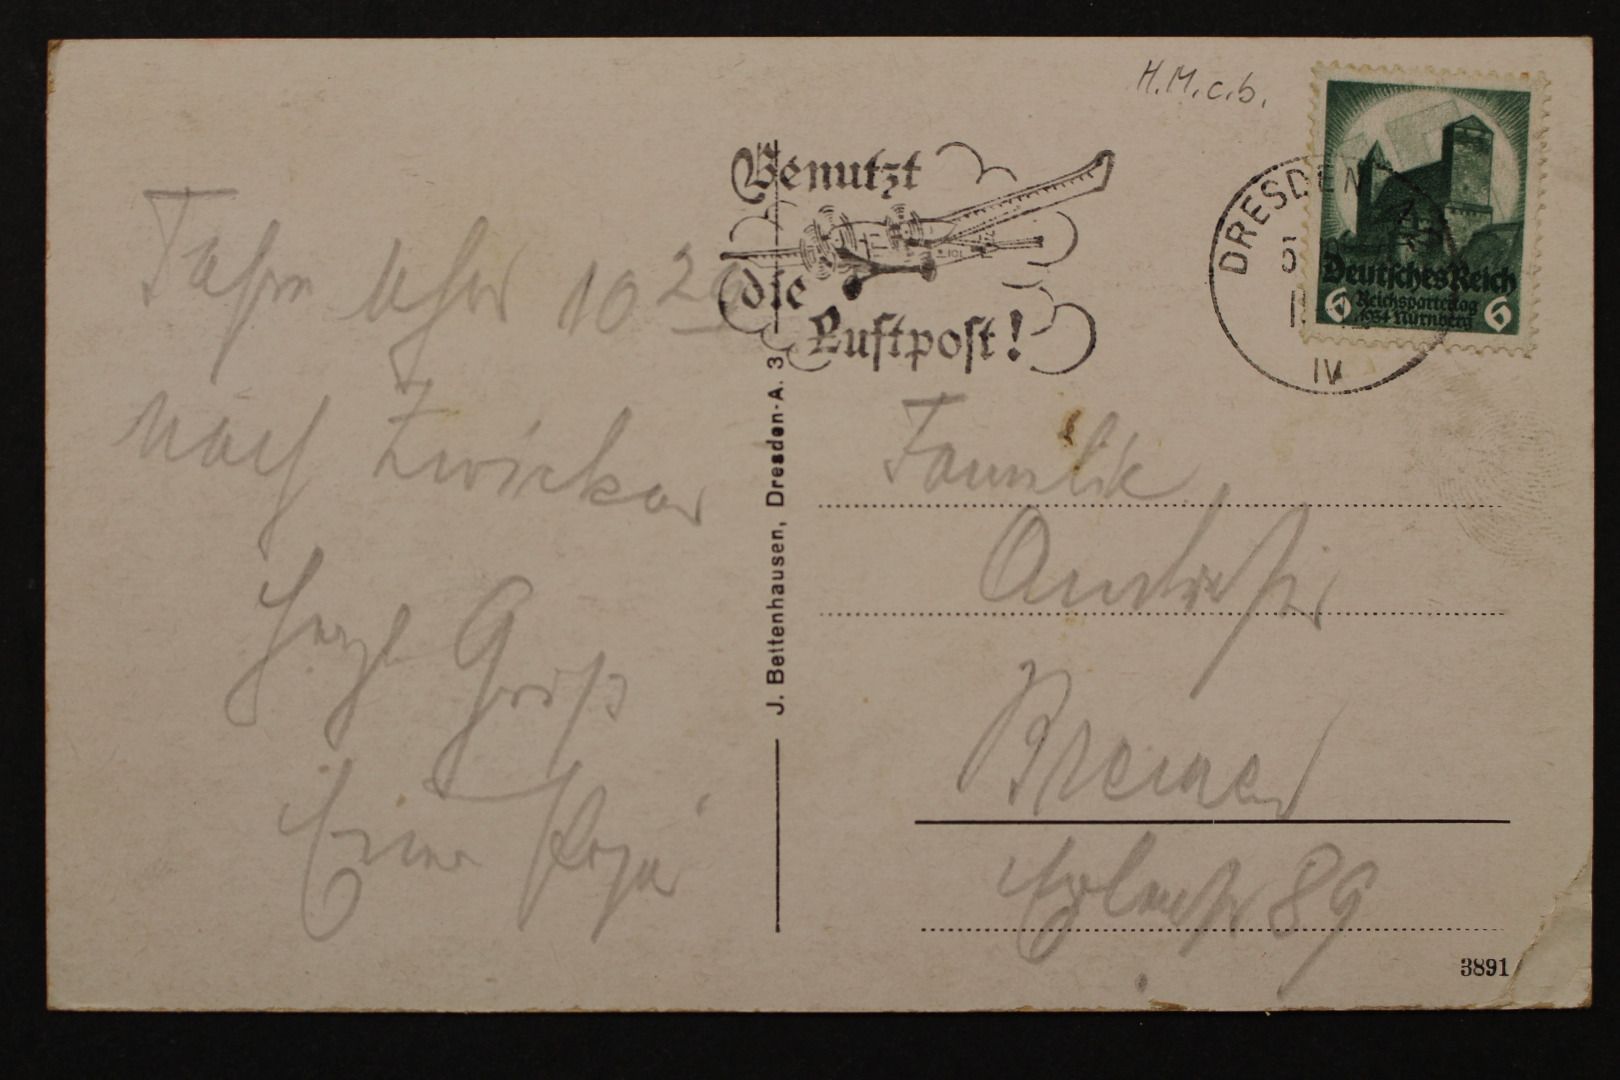 H.M.c.b.
Benutzt
die
Luftpost!
DRESDEN
5
IV
Deutsches Reich
Reichsparteitag
1934 Nürnberg
6 6
Uhr 10 29
nach Zwickau
Herzl Grüß
J. Bettenhausen, Dresden-A. 3
Familie
Bremen
89
3891